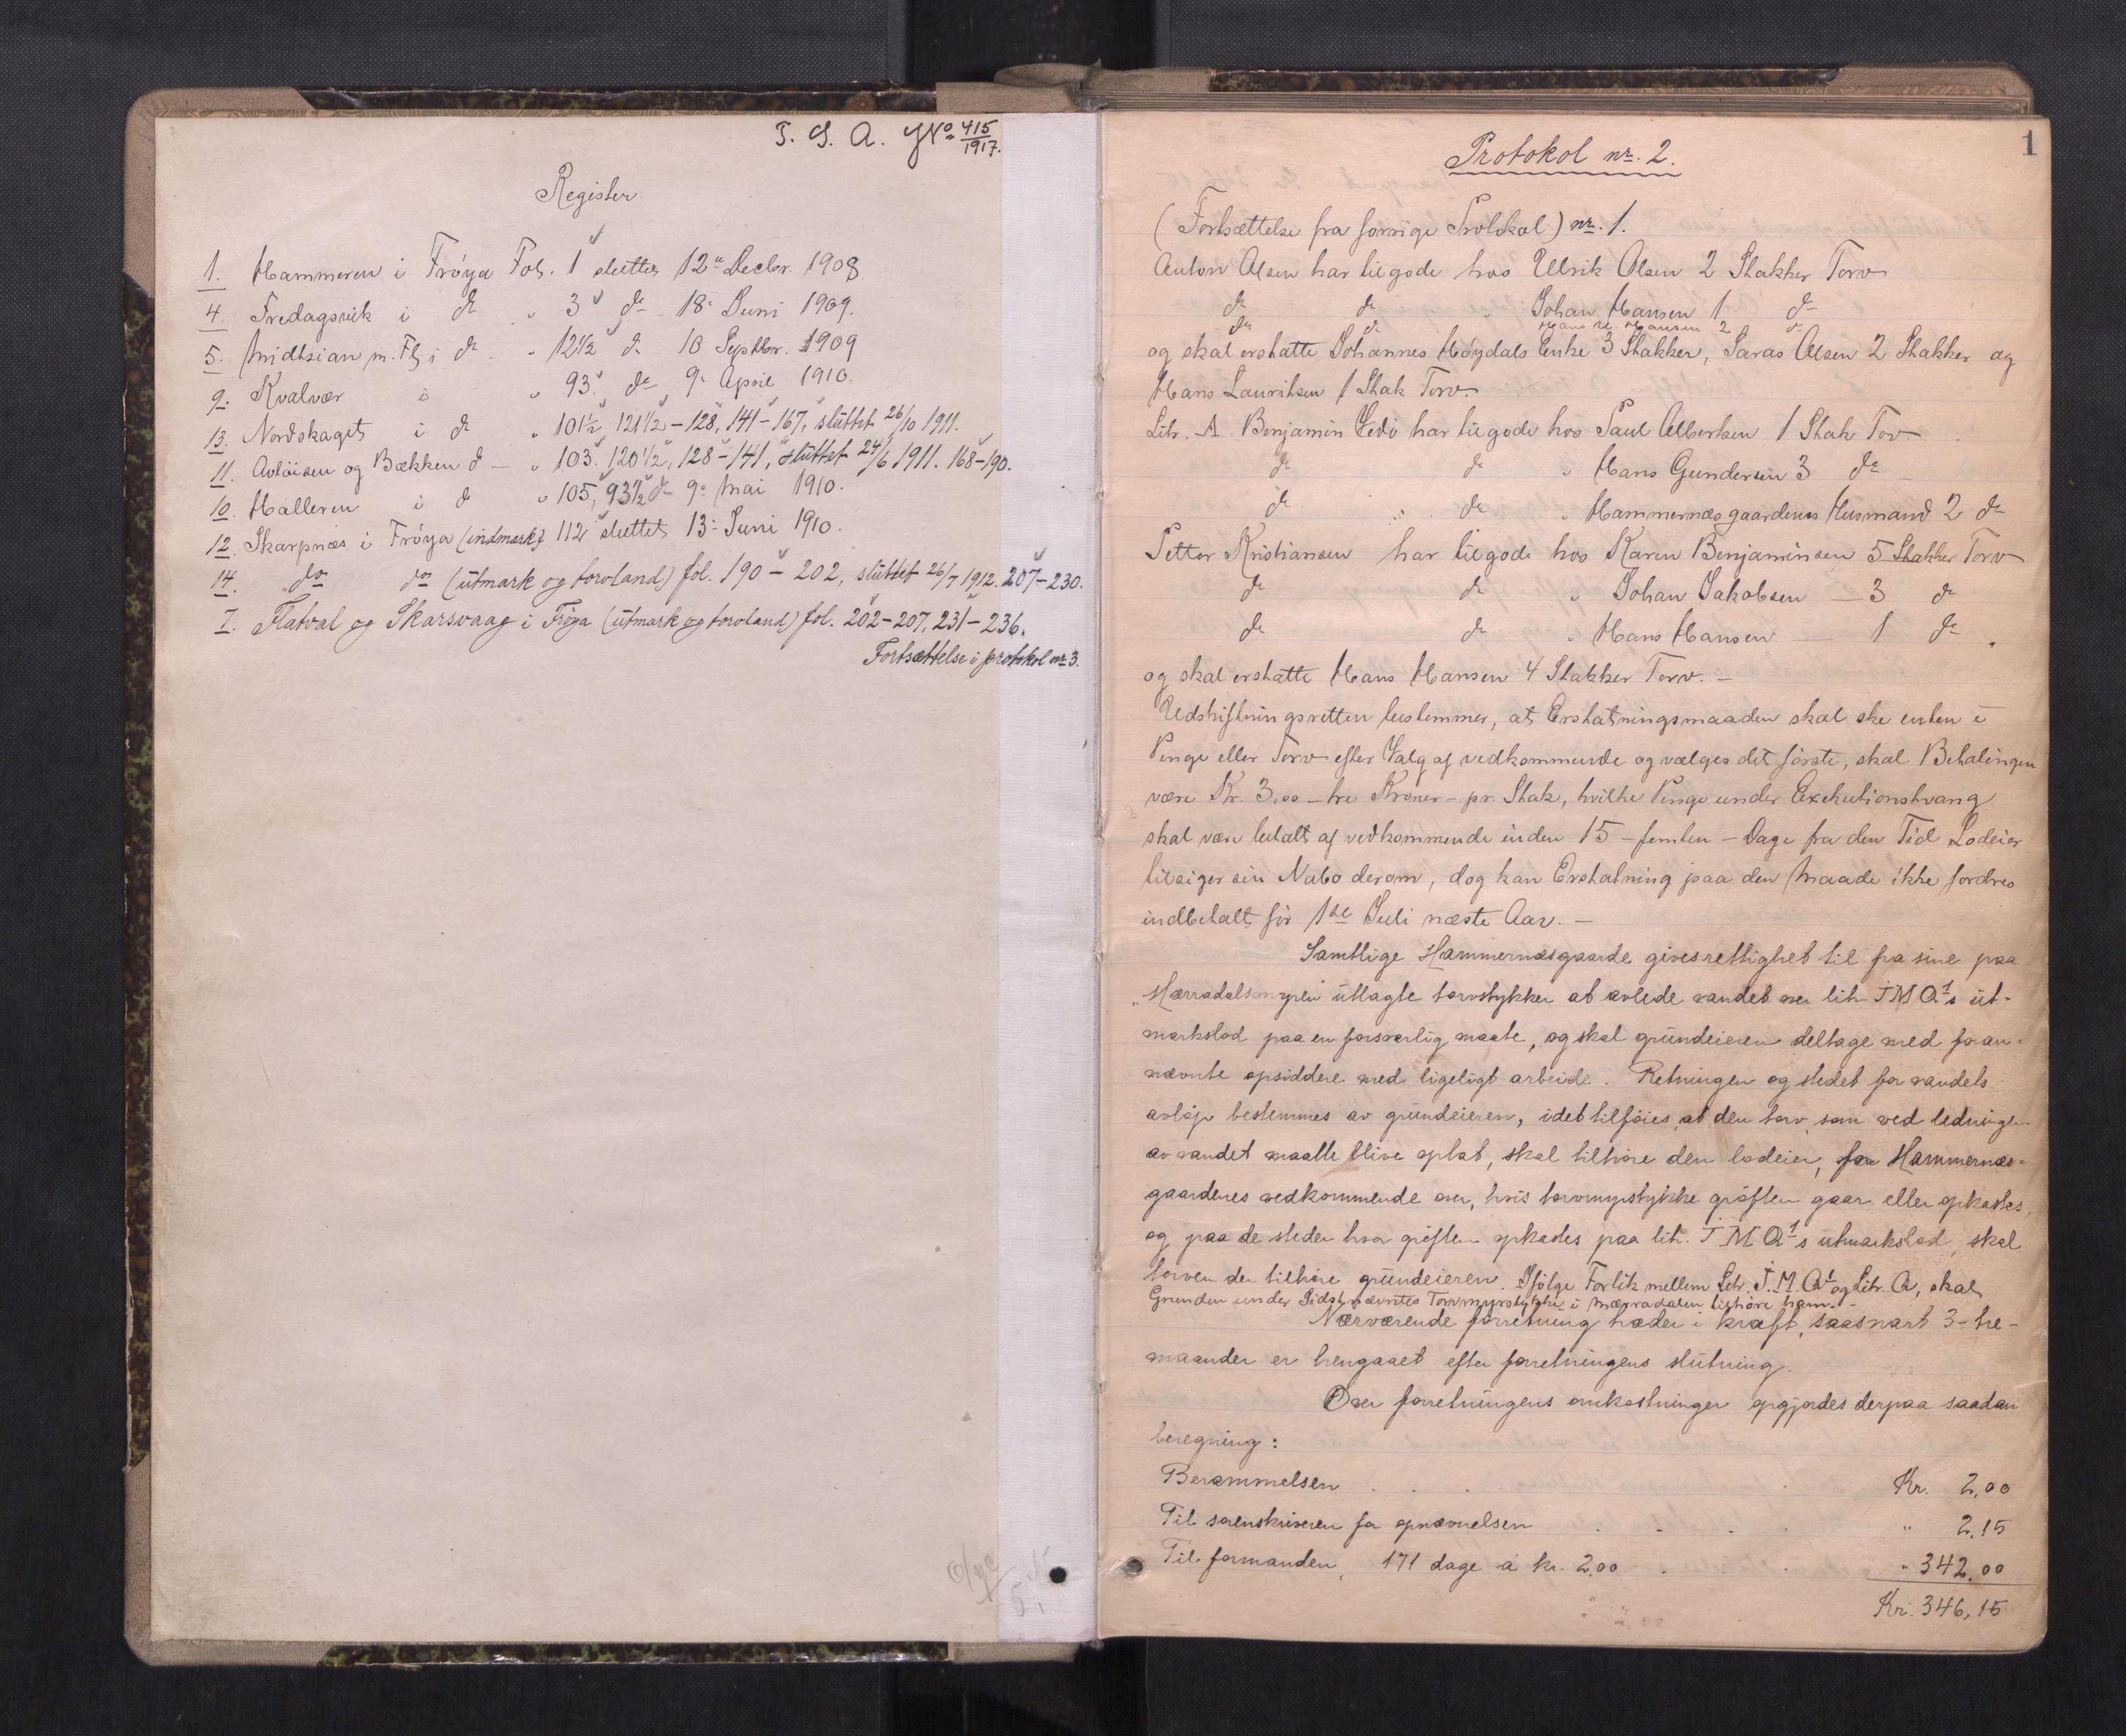 T. S. A. JNo 415/1917.
Register
1. Hammeren i Frøya Fol. 1 sluttet 12te Decbr. 1908.
4. Fredagsvik i do " 3 do 18. Juni 1909.
5. Midtsian m. Fl. i do " 12 1/2 do 10 Septbr. 1909
9. Kvalvær i " 93 do 9. April 1910.
13. Nordskaget i do " 101 1/2, 121 1/2 - 128, 141 - 167, sluttet 26/10 1911.
11. Avløisen og Bækken do — " 103. 120 1/2, 128 - 141, sluttet 24/6 1911. 168-190.
10. Halleren i do " 105, 93 1/2 do 9. Mai 1910.
12. Skarpnæs i Frøya (indmark) 112 sluttet 13. Juni 1910.
14. do do (utmark og torvland) fol. 190 - 202, sluttet 26/7 1912. 207-230.
7. Flatval og Skarsvaag i Frøya (utmark og torvland) fol. 202-207, 231-236.
Fortsættelse i protokol nr. 3.
1
Protokol nr. 2.
(Fortsættelse fra forrige Protokol) nr. 1.
Anton Olsen har tilgode hos Ullrik Olsen 2 Stakker Torv
do do " Johan Hansen 1 do
do do Hans Hansen 2 do
og skal erstatte Johannes Høydals Enke 3 Stakker, Saras Olsen 2 Stakker og
Hans Lauritsen 1 Stak Torv.
Litr. A. Benjamin Vedø har tilgode hos Paul Albertsen 1 Stak Tov
do do " Hans Gundersen 3 do
do do " Hammernæsgaardens Husmand 2 do
Petter Kristiansen har tilgode hos Karen Benjaminsen 5 Stakker Torv
do do " Johan Jakobsen — 3 do
do do " Hans Hansen — 1 do "
og skal erstatte Hans Hansen 4 Stakker Torv. —
Udskiftningsretten bestemmer, at Erstatningsmaaden skal ske enten i
Penge eller Torv efter Valg af vedkommende og vælges det første, skal Betalingen
være Kr. 3,00 - tre Kroner - pr. Stak, hvilke Penge under Exekutionstvang
skal være betalt af vedkommende inden 15 - femten - Dage fra den Tid Lodeier
tilsiger sin Nabo derom, dog kan Erstatning paa den Maade ikke fordres
indbetalt før 1ste Juli næste Aar. —
Samtlige Hammernæsgaarde gives rettighet til fra sine paa
Mærradalsmyren utlagte torvstykker at avlede vandet over litr. J M Q1s ut-
markslod paa en forsvarlig maate, og skal grundeieren deltage med foran-
nævnte opsiddere med ligeligt arbeide. Retningen og stedet for vandets
avløp bestemmes av grundeieren, idet tilføies, at den torv, som ved ledningen
av vandet maatte blive optat, skal tilhøre den lodeier, for Hammernæs-
gaardenes vedkommende over, hvis torvmyrstykke grøften gaar eller opkastes,
og paa de steder hvor grøften opkastes paa litr. J M Q1s utmarkslod, skal
torven der tilhøre grundeieren. Ifølge Forlik mellem Litr. J. M. Q1 og Litr. A, skal
Grunden under Sidstnævntes Torvmyrstykke i Mærradalen tilhøre ham. -
Nærværende forretning træder i kraft, saasnart 3 - tre -
maaneder er hengaaet efter forretningens slutning.
Over forretningens omkostninger opgjordes derpaa saadan
beregning:
Berammelsen . . . Kr. 2,00
Til sorenskriveren for opnævnelsen . . . " 2,15
Til formanden, 171 dage á kr. 2,00 . . . " 342,00
Kr. 346,15